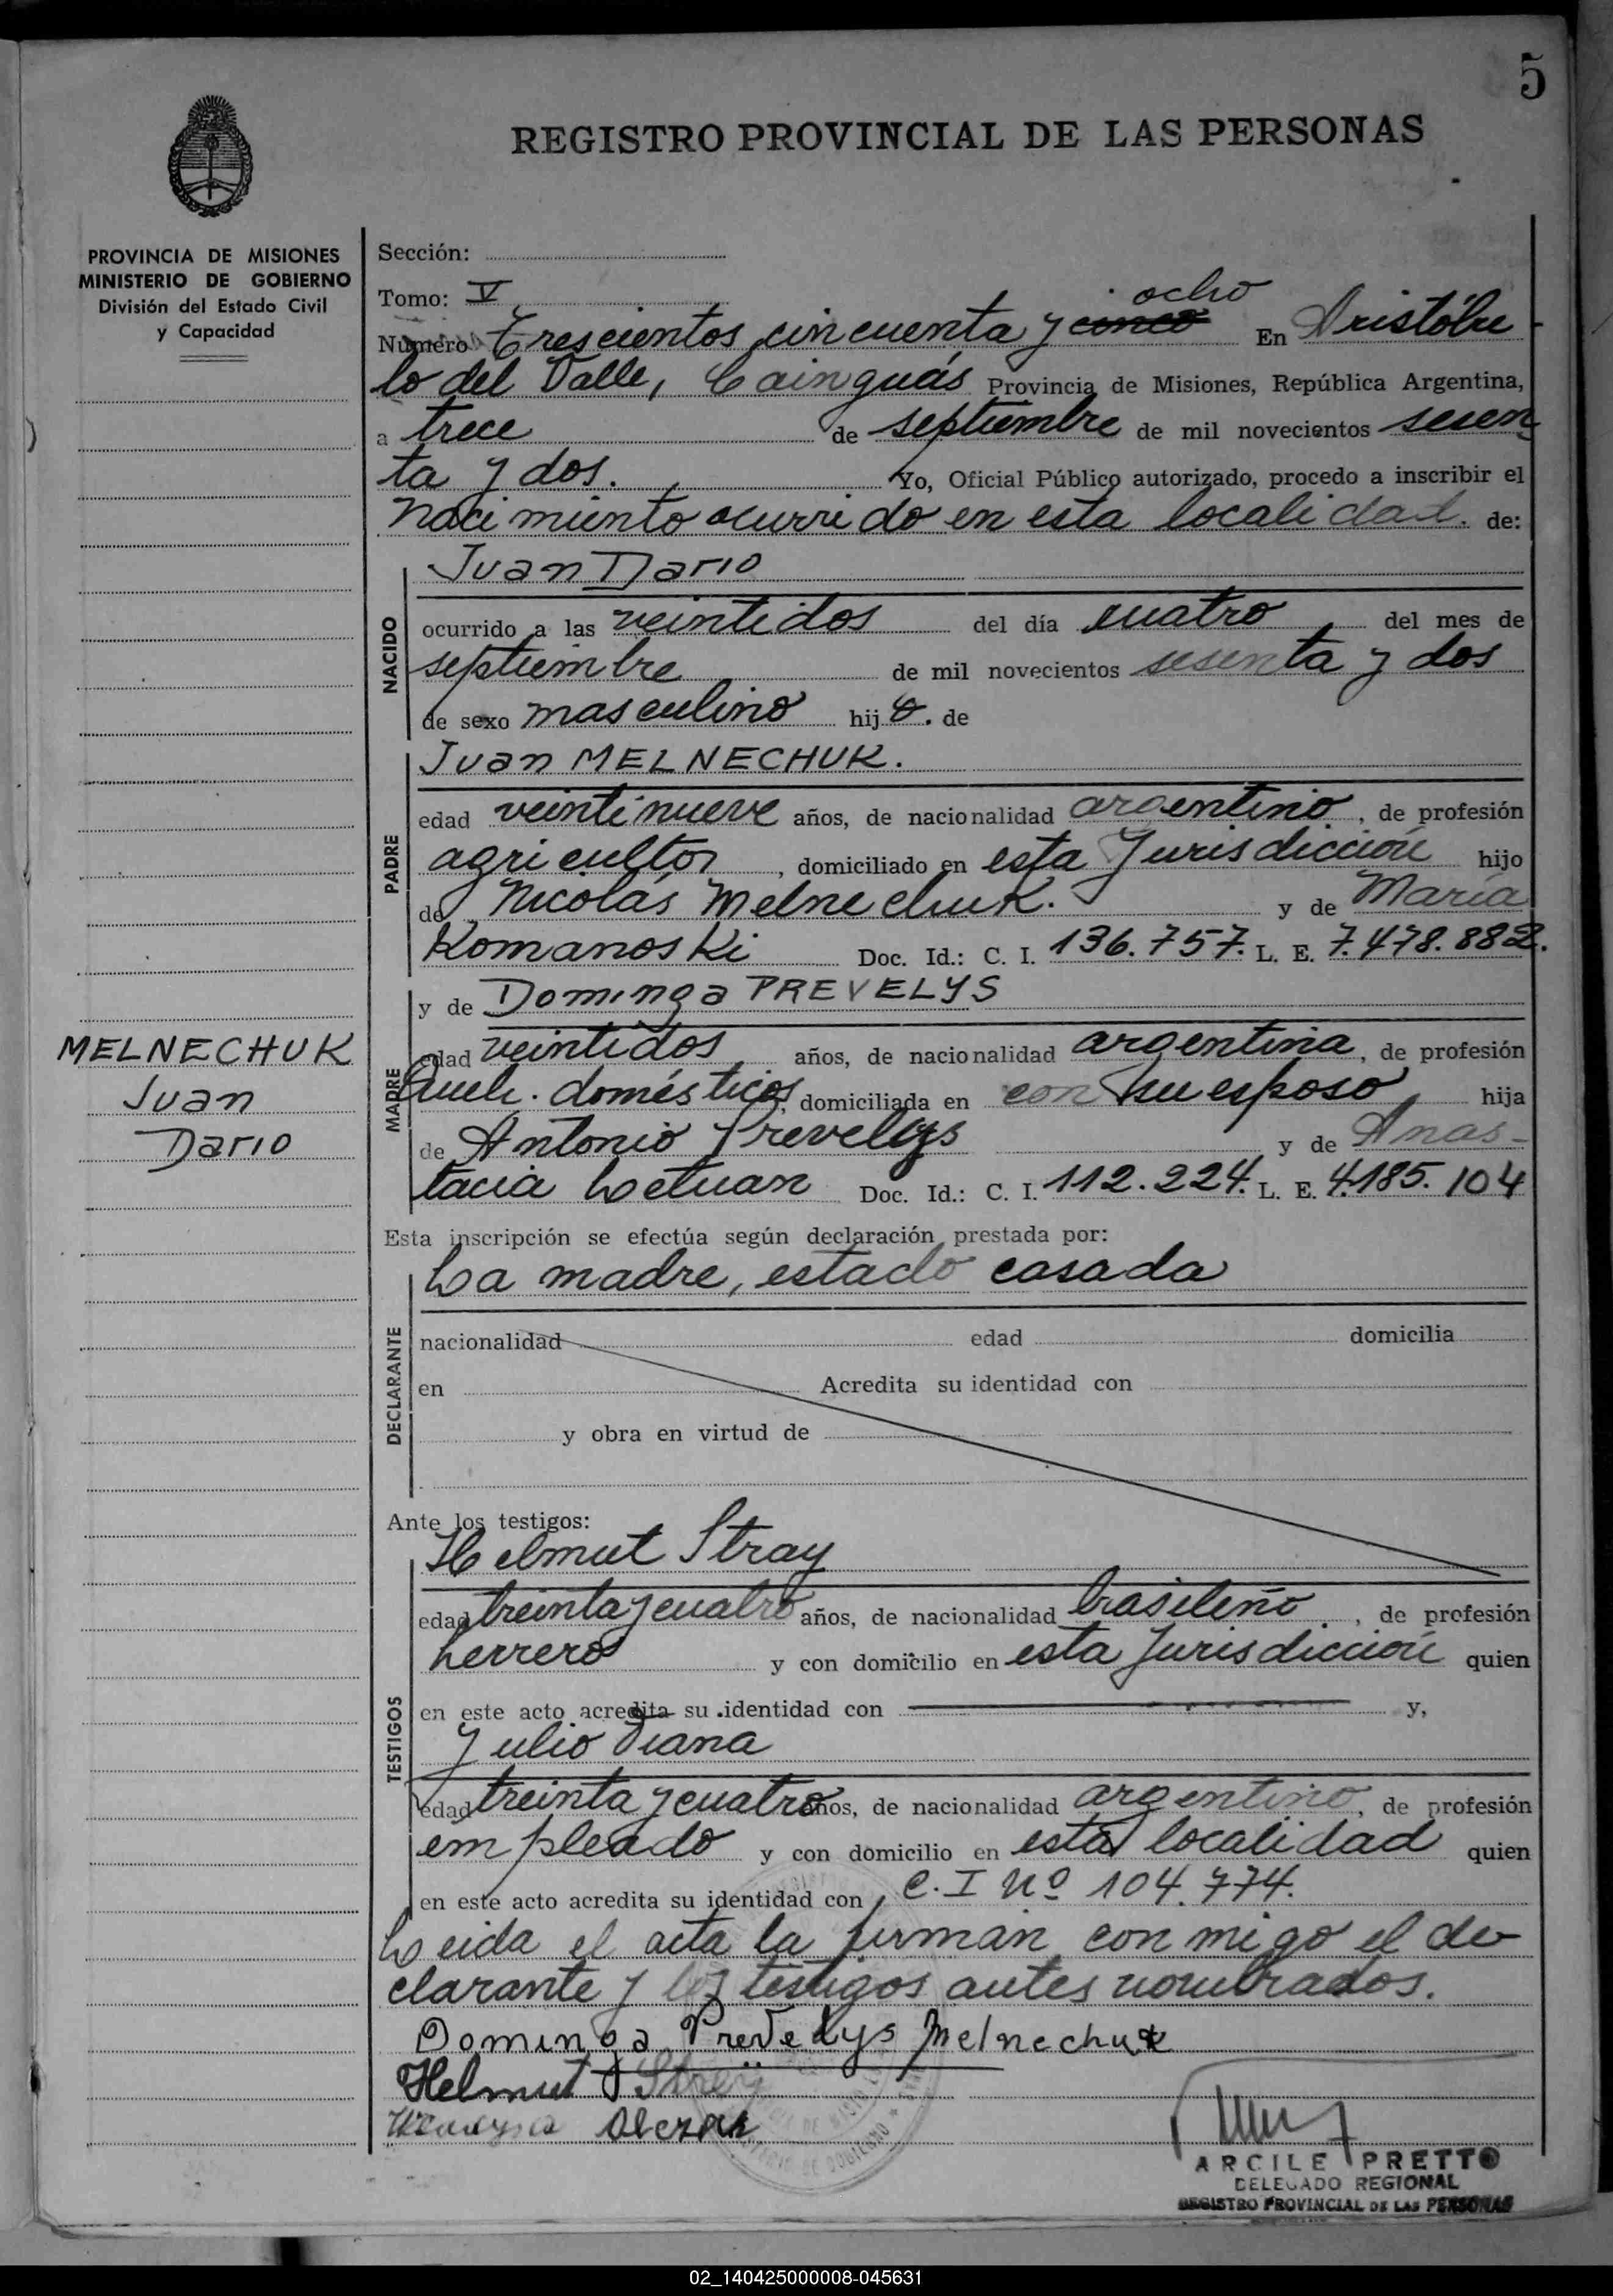 5
REGISTRO PROVINCIAL DE LAS PERSONAS
PROVINCIA DE MISIONES
MINISTERIO DE GOBIERNO
División del Estado Civil
y Capacidad
Sección:
Tomo: V
ocho
Número Trescientos cincuenta y cinco En Aristóbu
lo del Valle, Cainguás Provincia de Misiones, República Argentina,
a trece de septiembre de mil novecientos sesen
ta y dos. Yo, Oficial Público autorizado, procedo a inscribir el
nacimiento ocurrido en esta localidad. de:
NACIDO
Juan Dario
ocurrido a las veintidos del día cuatro del mes de
septiembre de mil novecientos sesenta y dos
de sexo masculino hijo. de
PADRE
Juan MELNECHUK.
edad veintinueve años, de nacionalidad argentino, de profesión
agricultor, domiciliado en esta Jurisdicción hijo
de Nicolás Melnechuk. y de María
Komanoski Doc. Id.: C. I. 136.757. L. E. 7.478.882.
MADRE
y de Dominga PREVELYS
edad veintidos años, de nacionalidad argentina, de profesión
Queh. domésticos, domiciliada en con su esposo hija
de Antonio Prevelys y de Anas-
tacia Letuan Doc. Id.: C. I. 112.224. L. E. 4.185.104
MELNECHUK
Juan
Dario
Esta inscripción se efectúa según declaración prestada por:
DECLARANTE
La madre, estado casada
nacionalidad edad domicilia
en Acredita su identidad con
y obra en virtud de
Ante los testigos:
TESTIGOS
Helmut Stray
edad treinta y cuatro años, de nacionalidad brasileño, de profesión
herrero y con domicilio en esta Jurisdicción quien
en este acto acredita su identidad con y,
Julio Viana
edad treinta y cuatro años, de nacionalidad argentino, de profesión
empleado y con domicilio en esta localidad quien
en este acto acredita su identidad con C. I Nº 104.774.
Leida el acta la firman con migo el de-
clarante y los testigos antes nombrados.
Dominga Prevelys Melnechuk
Helmut
ARCILE PRETTO
DELEGADO REGIONAL
REGISTRO PROVINCIAL DE LAS PERSONAS
02_140425000008-045631